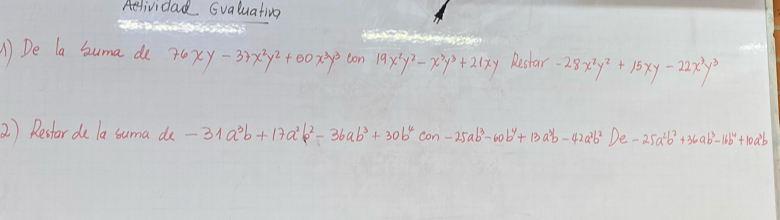 Actividad Evaluativa
1) De la suma de 76xy - 37x²y² + 60x³y³ con 19x²y² - x³y³ + 21xy Restar -28x²y² + 15xy - 22x³y³
2) Restar de la suma de -31a³b + 17a²b² - 36ab³ + 30b⁴ con -25ab³ - 60b⁴ + 13a³b - 42a²b² De -25a²b² + 36ab³ - 16b⁴ + 10a³b